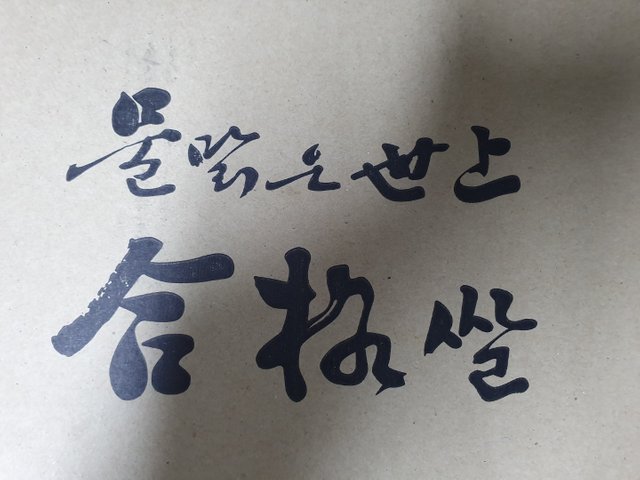 물맑은世上
合格쌀